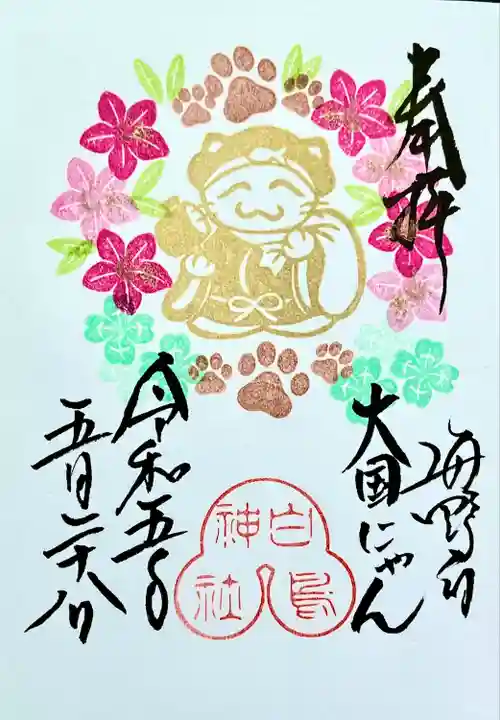 奉拝
海野宿
大国にゃん
白鳥
神社
令和五年
五月二十八日